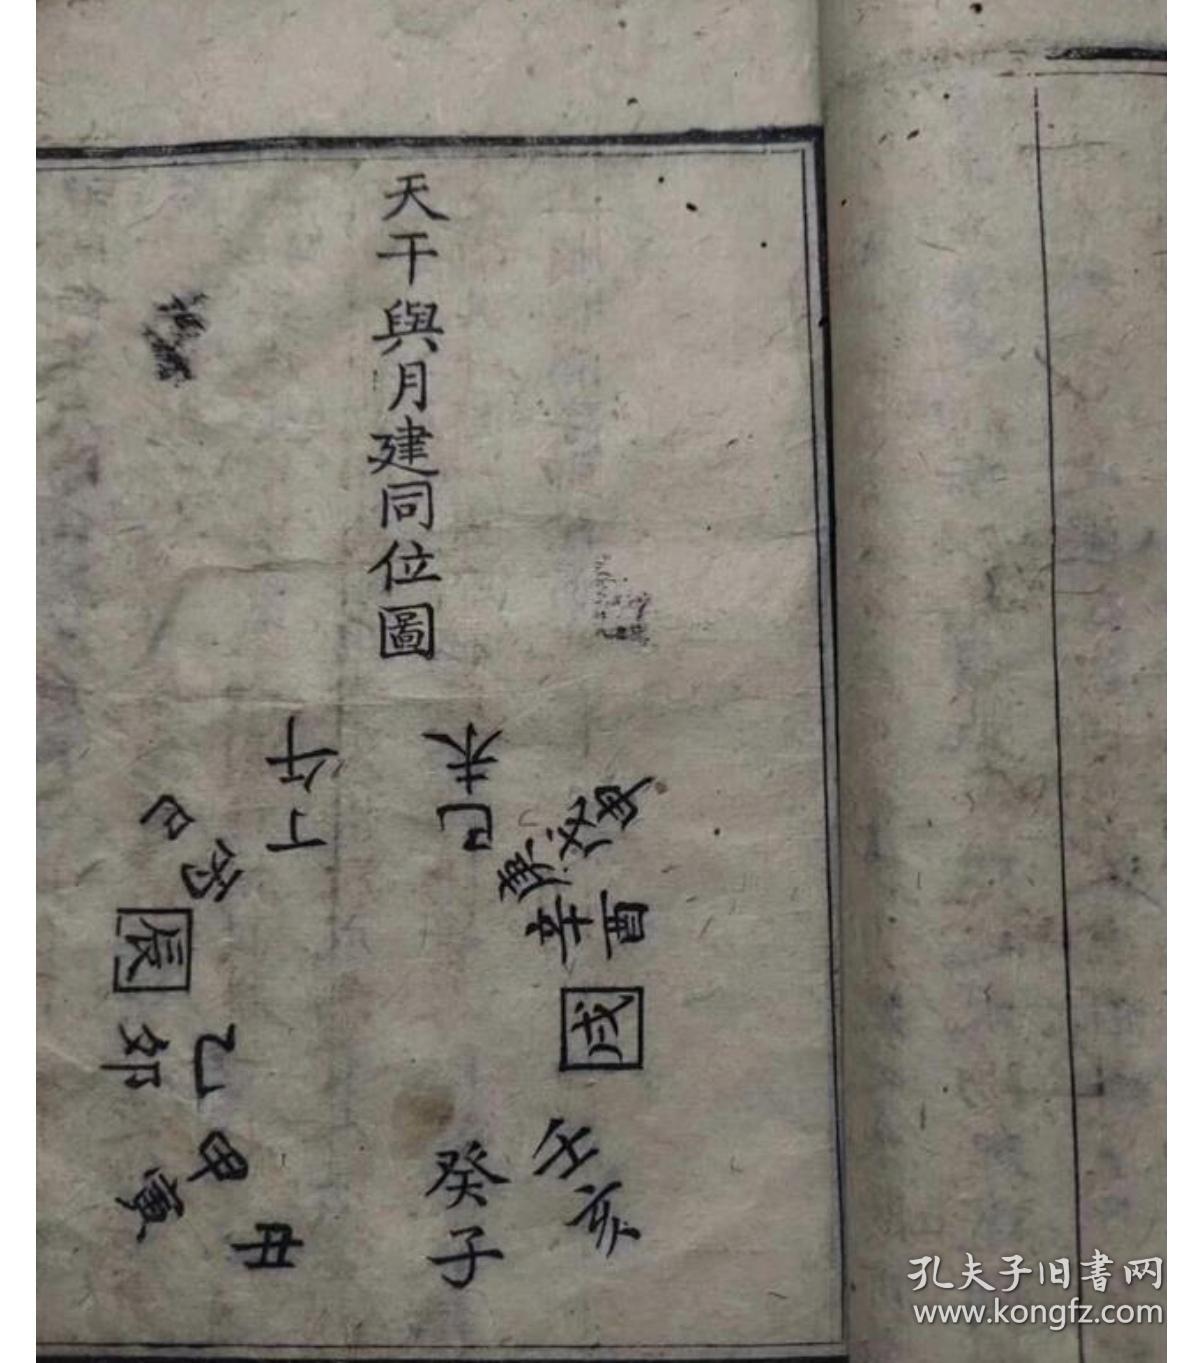 天干與月建同位圖
未
己
午
丁
巳
丙
庚
辛
酉
辰
戌
卯
乙
甲
寅
丑
癸
子
壬
亥
孔夫子旧書网
www.kongfz.com